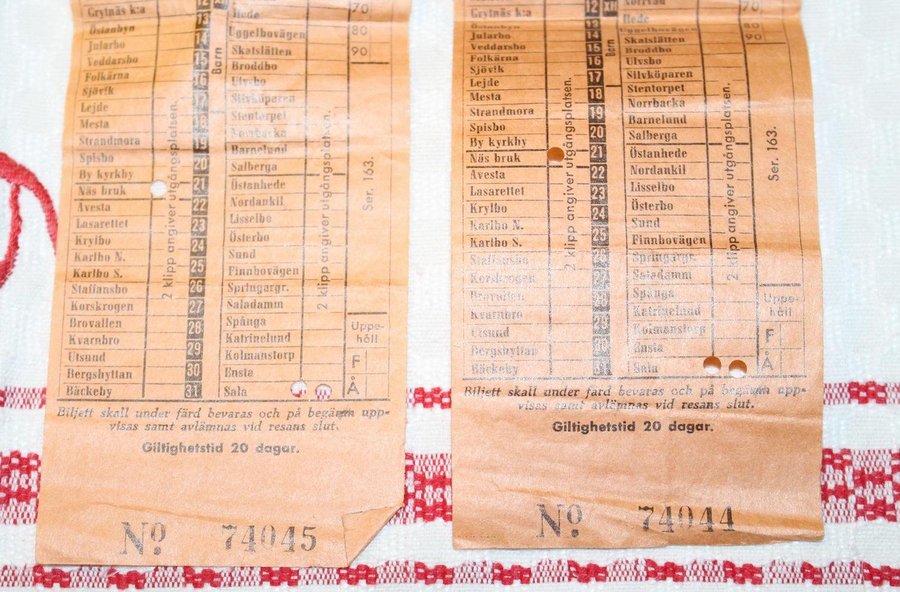 Grytnäs k:a
Östanbyn
Jularbo
Veddarsbo
Folkärna
Sjövik
Lejde
Mesta
Strandmora
Spisbo
By kyrkby
Näs bruk
Avesta
Lasarettet
Krylbo
Karlbo N.
Karlbo S.
Staffansbo
Korskrogen
Brovallen
Kvarnbro
Utsund
Bergshyttan
Bäckeby
2 klipp angiver utgångsplatsen.
12
13
14
15
16
17
18
19
20
21
22
23
24
25
26
27
28
29
30
31
XII
Barn
Hede
Uggelbovägen
Skatslätten
Broddbo
Ulvsbo
Silvköparen
Stentorpet
Norrbacka
Barnelund
Salberga
Östanhede
Nordankil
Lisselbo
Österbo
Sund
Finnbovägen
Springargr.
Saladamm
Spånga
Katrinelund
Kolmanstorp
Ensta
Sala
2 klipp angiver utgångsplatsen.
70
80
90
Ser. 163.
Uppe-
håll
F
Å
Biljett skall under färd bevaras och på begäran upp-
visas samt avlämnas vid resans slut.
Giltighetstid 20 dagar.
No 74045
Grytnäs k:a
Östanbyn
Jularbo
Veddarsbo
Folkärna
Sjövik
Lejde
Mesta
Strandmora
Spisbo
By kyrkby
Näs bruk
Avesta
Lasarettet
Krylbo
Karlbo N.
Karlbo S.
Staffansbo
Korskrogen
Brovallen
Kvarnbro
Utsund
Bergshyttan
Bäckeby
2 klipp angiver utgångsplatsen.
12
13
14
15
16
17
18
19
20
21
22
23
24
25
26
27
28
29
30
31
XII
Barn
Norrsal
Hede
Uggelbovägen
Skatslätten
Broddbo
Ulvsbo
Silvköparen
Stentorpet
Norrbacka
Barnelund
Salberga
Östanhede
Nordankil
Lisselbo
Österbo
Sund
Finnbovägen
Springargr.
Saladamm
Spånga
Katrinelund
Kolmanstorp
Ensta
Sala
2 klipp angiver utgångsplatsen.
70
80
90
Ser. 163.
Uppe-
håll
F
Å
Biljett skall under färd bevaras och på begäran upp-
visas samt avlämnas vid resans slut.
Giltighetstid 20 dagar.
No 74044